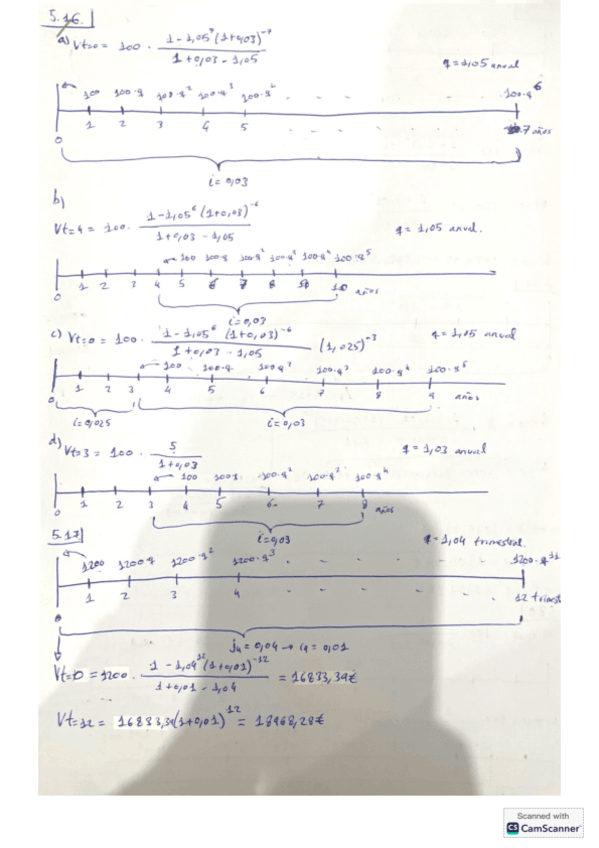 5.16.
a) Vt=0 = 100 · (1 - 1,05^7 (1+0,03)^-7) / (1+0,03 - 1,05)
q = 1,05 anual
100 100·q 100·q^2 100·q^3 100·q^4 - - - 100·q^6
0 1 2 3 4 5 - - - 7 años
i = 0,03
b)
Vt=4 = 100 · (1 - 1,05^6 (1+0,03)^-6) / (1+0,03 - 1,05)
q = 1,05 anual.
100 100·q 100·q^2 100·q^3 100·q^4 100·q^5
0 1 2 3 4 5 6 7 8 10 años
i = 0,03
c) Vt=0 = 100 · (1 - 1,05^6 (1+0,03)^-6) / (1+0,03 - 1,05) (1,025)^-3
q = 1,05 anual
100 100·q 100·q^2 100·q^3 100·q^4 100·q^5
0 1 2 3 4 5 6 7 8 9 años
i = 0,025 i = 0,03
d) Vt=3 = 100 · 5 / (1+0,03)
q = 1,03 anual
100 100·q 100·q^2 100·q^3 100·q^4
0 1 2 3 4 5 6 7 8 años
i = 0,03
5.17
q = 1,04 trimestral.
1200 1200·q 1200·q^2 1200·q^3 - - - 1200·q^11
0 1 2 3 4 - - - 12 trimest
j4 = 0,04 → i4 = 0,01
Vt=0 = 1200 · (1 - 1,04^12 (1+0,01)^-12) / (1+0,01 - 1,04) = 16833,34€
Vt=12 = 16833,34(1+0,01)^12 = 18968,28€
Scanned with
CS CamScanner